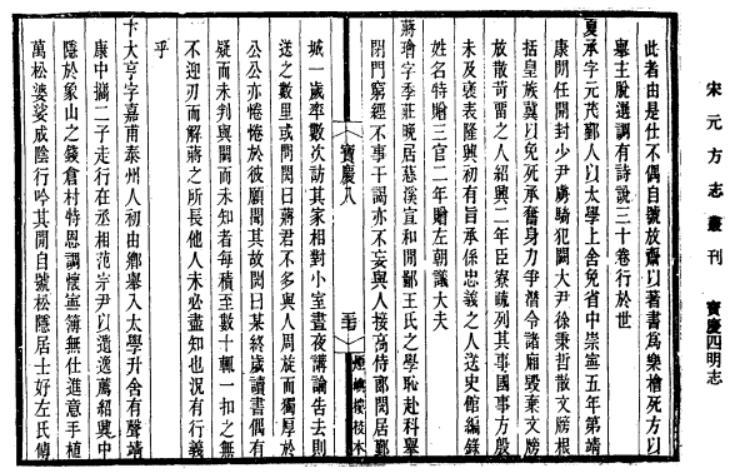 宋元方志叢刊　寶慶四明志
此者由是仕不偶自號放齋以著書爲樂檜死方以
舉主脫選調有詩說三十卷行於世
夏承字元茂鄞人以太學上舍免省中崇寧五年第靖
康閒任開封少尹虜騎犯闕大尹徐秉哲散文牓根
括皇族冀以免死承奮身力爭潛令諸廂毀棄文牓
放散苛留之人紹興二年臣寮疏列其事國事方殷
未及褒表隆興初有旨承係忠義之人送史館編錄
姓名特贈三官二年贈左朝議大夫
蔣璿字季莊晚居慈溪宣和閒鄙王氏之學恥赴科舉
閉門窮經不事干謁亦不妄與人接高侍郎閌居鄞
寶慶八
煙嶼樓校本
城一歲率數次訪其家相對小室晝夜講論告去則
送之數里或問閌曰蔣君不多與人周旋而獨厚於
公公亦惓惓於彼願聞其故閌曰某終歲讀書偶有
疑而未判與闕而未知者每積至數十輒一扣之無
不迎刃而解蔣之所長他人未必盡知也況有行義
乎
卞大亨字嘉甫泰州人初由鄉舉入太學升舍有聲靖
康中攜二子走行在丞相范宗尹以遺逸薦紹興中
隱於象山之錢倉村特恩調懷寧簿無仕進意手植
萬松婆娑成陰行吟其閒自號松隱居士好左氏傳